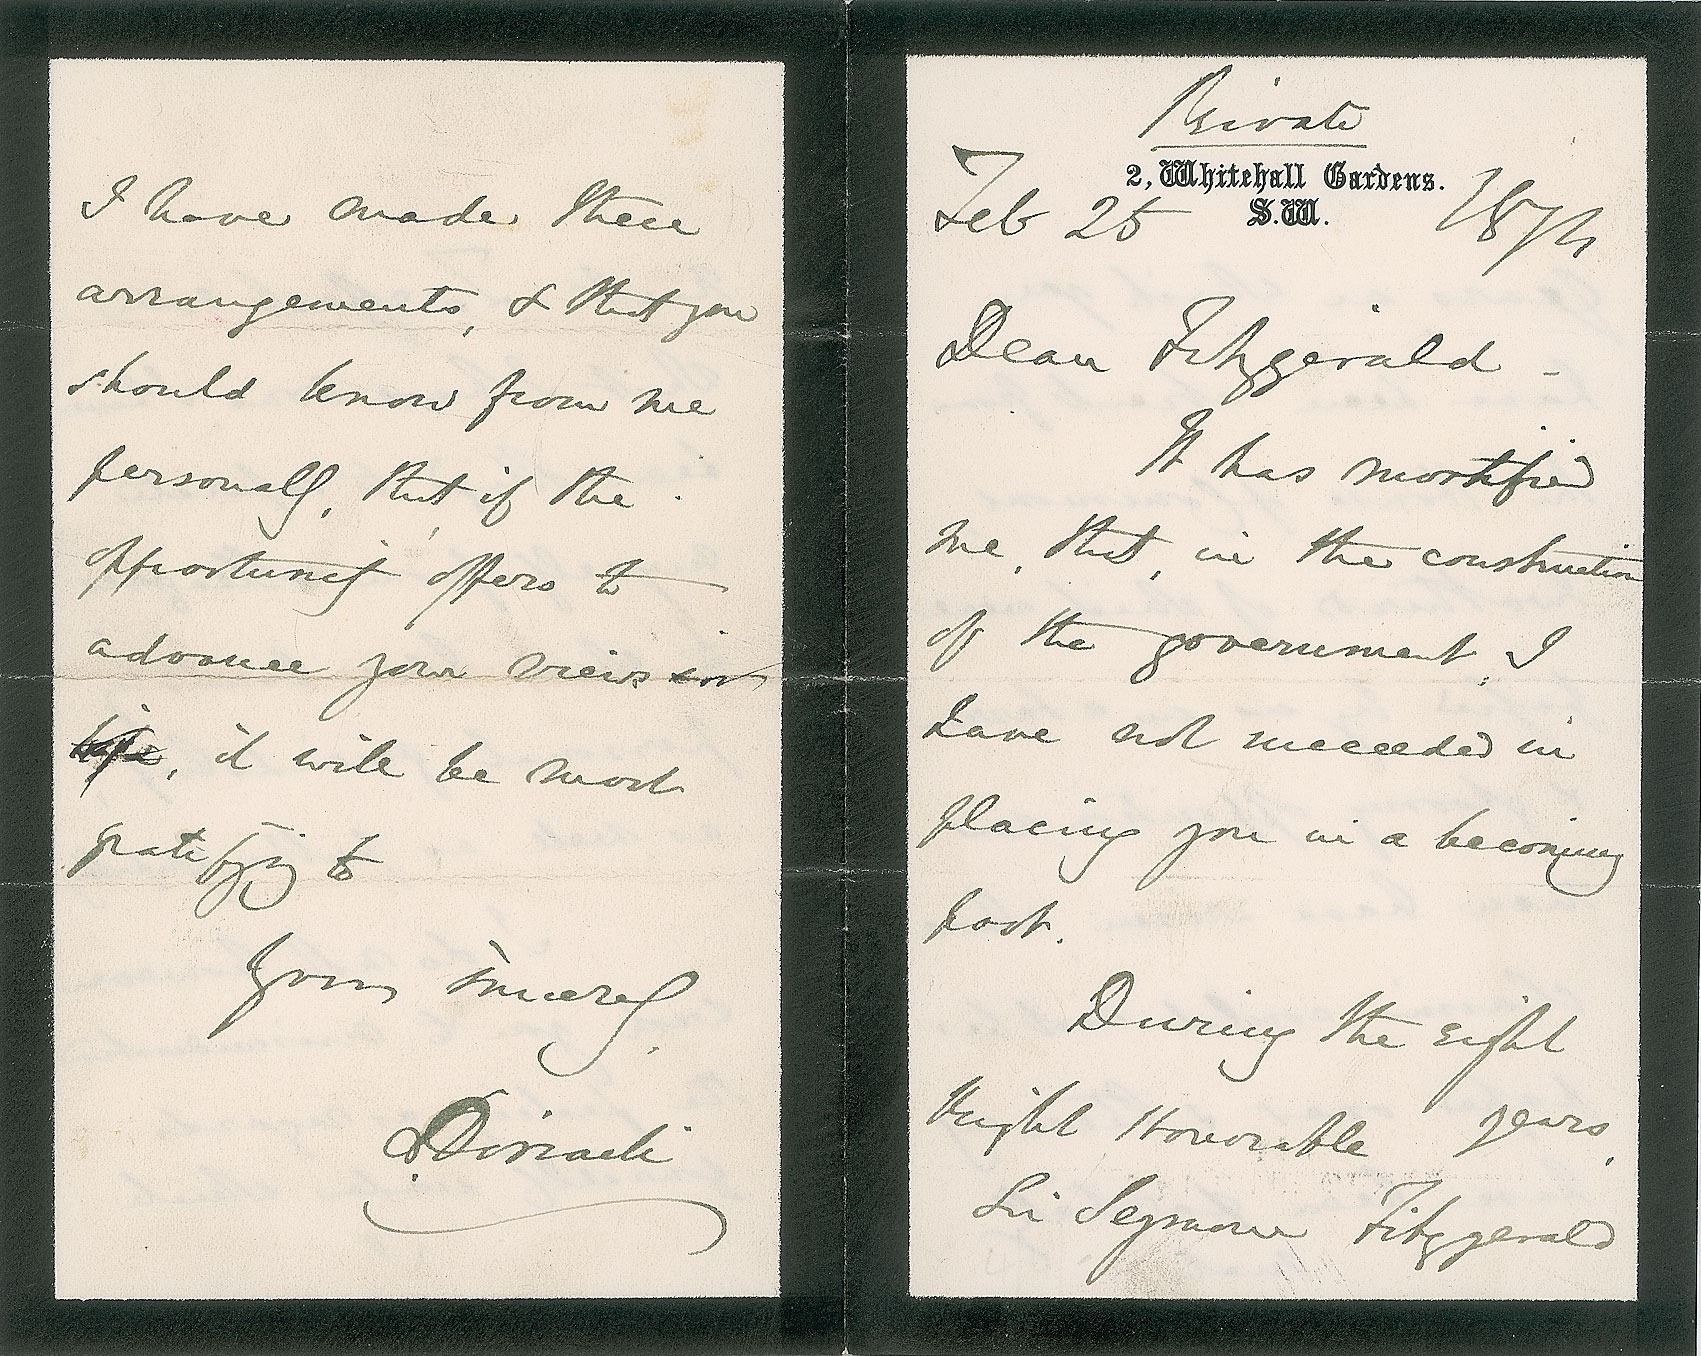 Private
2, Whitehall Gardens.
S.W.
Feb 25 1874
Dear Fitzgerald -
It has mortified
me, that, in the construction
of the government, I
have not succeeded in
placing you in a becoming
post.
During the eight
years,
Right Honorable
Sir Seymour Fitzgerald
I have made these
arrangements, & that you
should know from me
personally, that if the
opportunity offers to
advance your views in
life, it will be most
gratifying to
Yours sincerely,
B Disraeli